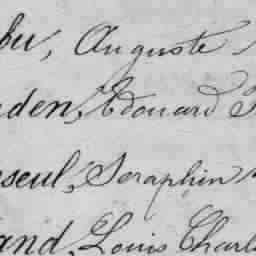 bu, Auguste
den, Edouard
seul, Seraphin
and, Louis Charl